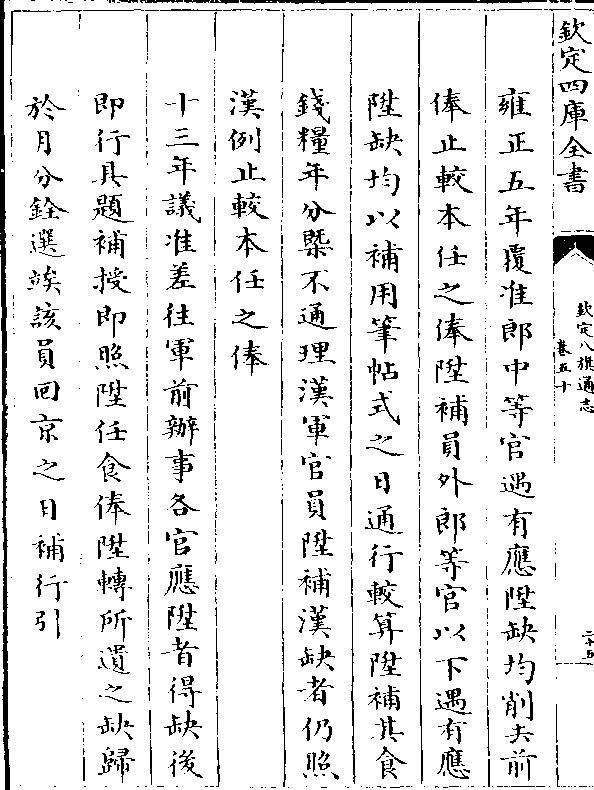 欽定四庫全書
欽定八旗通志
卷五十
二十五
雍正五年覆准郎中等官遇有應陞缺均削去前
俸止較本任之俸陞補員外郎等官以下遇有應
陞缺均以補用筆帖式之日通行較算陞補其食
錢糧年分槩不通理漢軍官員陞補漢缺者仍照
漢例止較本任之俸
十三年議准差往軍前辦事各官應陞者得缺後
即行具題補授即照陞任食俸陞轉所遺之缺歸
於月分銓選竢該員回京之日補行引